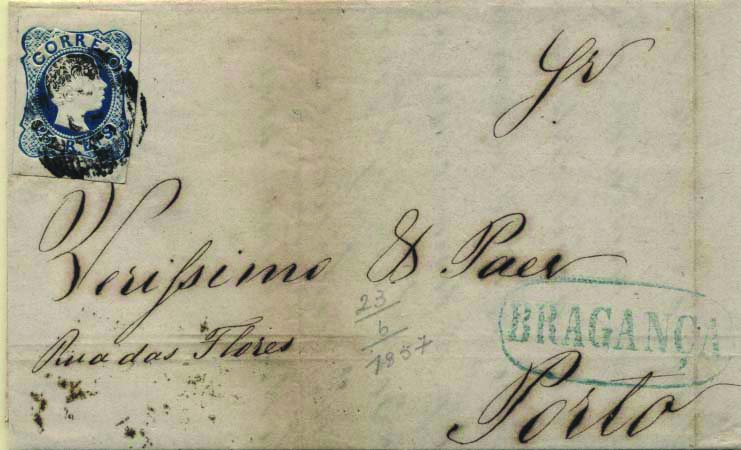 CORREIO
REIS
Sr
Veriſsimo & Paer
23
6
1857
BRAGANÇA
Rua das Flores
Porto